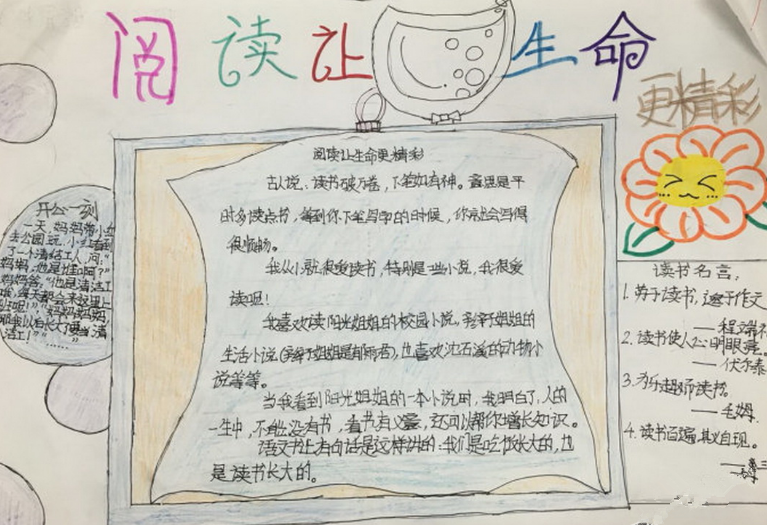 阅读让生命
更精彩
阅读让生命更精彩
古人说、读书破万卷，下笔如有神。意思是平
时多读点书，等到你下笔写字的时候，你就会写得
很顺畅。
我从小就很爱读书，特别是一些小说，我很爱
读呢！
我喜欢读阳光姐姐的校园小说。
生活小说
也喜欢沈石溪的动物小
说等等。
当我看到阳光姐姐的一本小说时，我明白了，人的
一生中，不能没有书，看书有义意，还可以帮你增长知识。
语文书上有句话是这样讲的：我们是吃饭长大的，也
是读书长大的。
开心一刻
一天，妈妈带小红
去公园玩，小红看到
了一个清洁工人，问：“
妈妈，他是谁啊？”
“他是清洁工
读书名言，
1. 劳于读书，逸于作文
——程端礼
2. 读书使人心明眼亮。
——伏尔泰
3.
——毛姆
4. 读书百遍，其义自现。